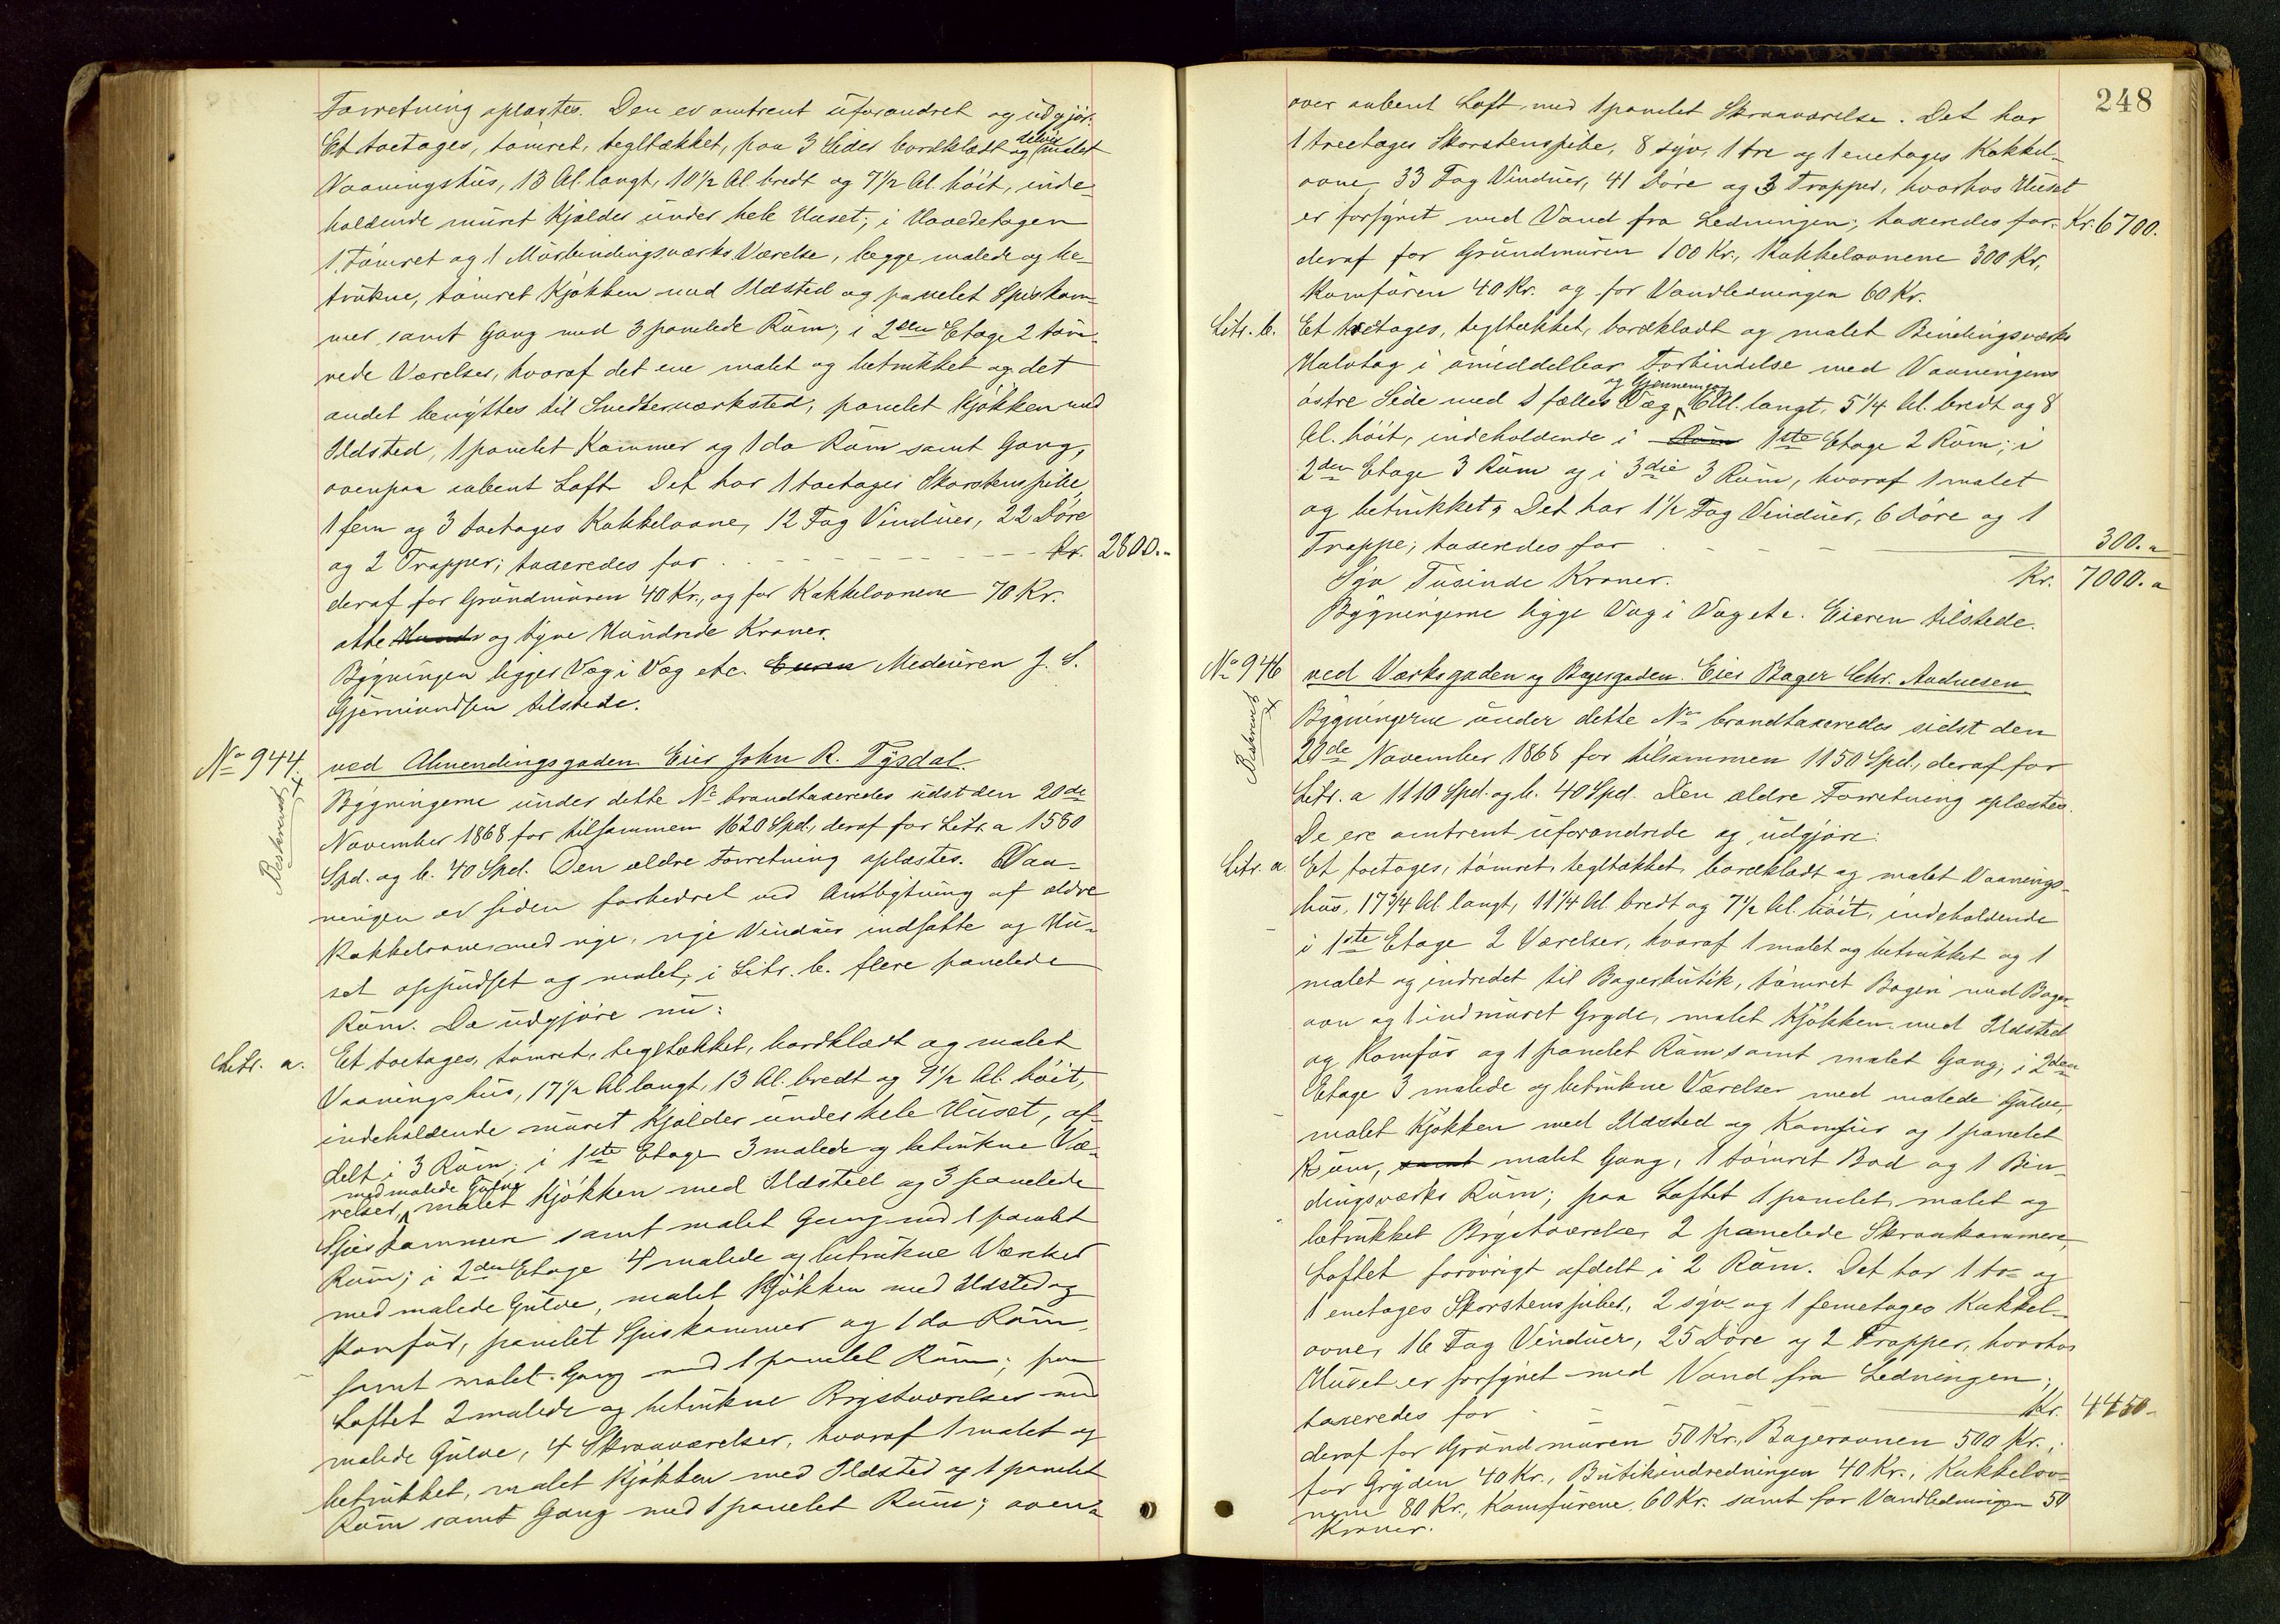 Forretning oplæstes. Den er omtrent uforandret og udgjør:
Et toetages, tømret, tegltækket, paa 3 Sider bordklædt og delvis malet
Vaaningshus, 13 Al. langt, 10½ Al. bredt og 7½ Al. høit, inde-
holdende muret Kjælder under hele Huset; i Hovedetagen
1 tømret og 1 Murbindingsværks Værelse, begge malede og be-
trukne, tømret Kjøkken med Ildsted og panelet Spiskam-
mer samt Gang med 3 panelede Rum; i 2den Etage 2 tøm-
rede Værelser, hvoraf det ene malet og betrukket og det
andet benyttes til Snedkerværksted, panelet Kjøkken med
Ildsted, 1 panelet Kammer og 1 do Rum samt Gang,
ovenpaa aabent Loft. Det har 1 toetages Skorstenspibe,
1 fem og 3 toetages Kakkelovne, 12 Fag Vinduer, 22 Døre
og 2 Trapper; taxeredes for - - - Kr. 2800.-
deraf for Grundmuren 40 Kr., og for Kakkelovnene 70 Kr.
otte Hundr og tyve Hundrede Kroner.
Bygningen ligger Væg i Væg etc. Eieren Medeieren J. S.
Gjermundsen tilstede.
No 944. ved Almendingsgaden. Eier John R. Tysdal.
Beskrevet
Bygningerne under dette No brandtaxeredes sidst den 20de
November 1868 for tilsammen 1620 Spd., deraf for Litr. a 1580
Spd. og b. 40 Spd. Den ældre Forretning oplæstes. Vaa-
ningen er siden forbedret ved Ombytning af ældre
Kakkelovne med nye, nye Vinduer indsatte og Hu-
set oppudset og malet; i Litr. b. flere panelede
Rum. De udgjøre nu:
Litr. a. Et toetages, tømret, tegltækket, bordklædt og malet
Vaaningshus, 17½ Al. langt, 13 Al. bredt og 9½ Al. høit,
indeholdende muret Kjælder under hele Huset, af-
delt i 3 Rum; i 1ste Etage 3 malede og betrukne Væ-
relser med malede Gulve, malet Kjøkken med Ildsted og 3 panelede
Spiskammere samt malet Gang med 1 panelet
Rum; i 2den Etage 4 malede og betrukne Værelser
med malede Gulve, malet Kjøkken med Ildsted og
Komfur, panelet Spiskammer og 1 do Rum
samt malet Gang med 1 panelet Rum; paa
Loftet 2 malede og betrukne Brystværelser med
malede Gulve, 4 Skraaværelser, hvoraf 1 malet og
betrukket, malet Kjøkken med Ildsted og 1 panelet
Rum samt Gang med 1 panelet Rum; oven-
248
over aabent Loft med 1 panelet Skraaværelse. Det har
1 treetages Skorstenspibe, 8 syv, 1 tre og 1 enetages Kakkel-
ovne, 33 Fag Vinduer, 41 Døre og 3 Trapper, hvorhos Huset
er forsynet med Vand fra Ledningen; taxeredes for Kr. 6700.
deraf for Grundmuren 100 Kr., Kakkelovnene 300 Kr,
Komfuren 40 Kr. og for Vandledningen 60 Kr.
Litr. b. Et treetages, tegltækket, bordklædt og malet Bindingsværks
Halvtag i umiddelbar Forbindelse med Vaaningens
østre Side med 1 fælles Væg og Gjennemgang, 6 Al. langt, 5¼ Al. bredt og 8
Al. høit, indeholdende i Rum 1ste Etage 2 Rum; i
2den Etage 3 Rum og i 3die 3 Rum, hvoraf 1 malet
og betrukket. Det har 1½ Fag Vinduer, 6 Døre og 1
Trappe; taxeredes for - - - 300.-
Syv Tusinde Kroner. Kr. 7000.-
Bygningerne ligge Væg i Væg etc. Eieren tilstede.
No 946 ved Værksgaden og Bagergaden. Eier Bager Chr. Audnesen
Beskrevet
Bygningerne under dette No brandtaxeredes sidst den
20de November 1868 for tilsammen 1150 Spd., deraf for
Litr. a 1110 Spd. og b. 40 Spd. Den ældre Forretning oplæstes.
De ere omtrent uforandrede og udgjøre:
Litr. a. Et toetages, tømret, tegltækket, bordklædt og malet Vaanings-
hus, 17¾ Al. langt, 11¼ Al. bredt og 7½ Al. høit, indeholdende
i 1ste Etage 2 Værelser, hvoraf 1 malet og betrukket og 1
malet og indredet til Bagerbutik, tømret Bageri med Bager-
ovn og 1 indmuret Gryde, malet Kjøkken med Ildsted
og Komfur og 1 panelet Rum samt malet Gang; i 2den
Etage 3 malede og betrukne Værelser med malede Gulve,
malet Kjøkken med Ildsted og Komfur og 1 panelet
Rum, samt malet Gang, 1 tømret Bod og 1 Bin-
dingsværks Rum; paa Loftet 1 panelet, malet og
betrukket Brystværelse, 2 panelede Skraakammere,
Loftet forøvrigt afdelt i 2 Rum. Det har 1 to- og
1 enetages Skorstenspiber, 2 syv og 1 femetages Kakkel-
ovne, 16 Fag Vinduer, 25 Døre og 2 Trapper, hvorhos
Huset er forsynet med Vand fra Ledningen;
taxeredes for - - - Kr. 4450-
deraf for Grundmuren 50 Kr., Bagerovnen 500 Kr.,
for Gryden 40 Kr., Butikindredningen 40 Kr., Kakkelov-
nene 80 Kr., Komfurene 60 Kr. samt for Vandledningen 50
Kroner.